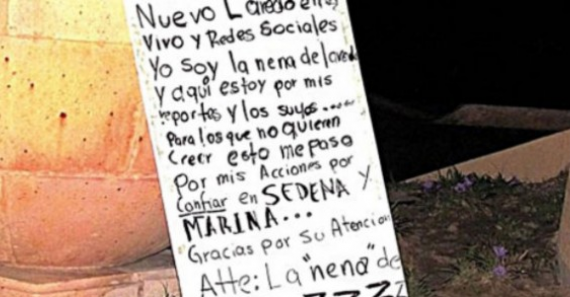 Nuevo Laredo en
Vivo y Redes Sociales
Yo soy la nena de Laredo
Y aquí estoy por mis
reportes y los suyos.....
Para los que no quieren
Creer esto me paso
Por mis Acciones por
Confiar en SEDENA y
MARINA...
Gracias por su Atencion
Atte: La "nena" de
ZZZZ